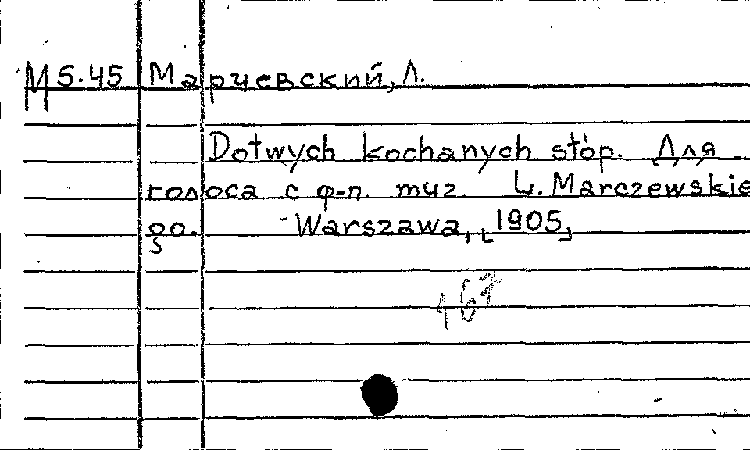 М 5.45 Марчевский, Л.
Dotwych kochanych stóp. Для
голоса с ф-п. muz. L. Marczewskie
go. - Warszawa, [1905]
167